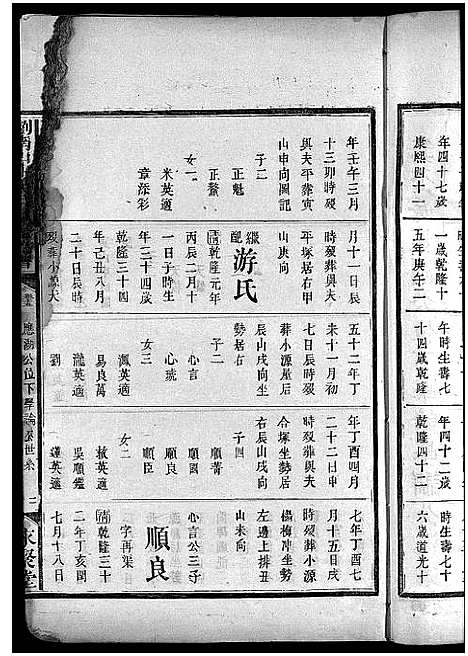 年四十七歲
康熙四十一
一歲乾隆十
五年庚午二
午時生壽七
十四歲乾隆
年四十二歲
乾隆四十二
時生壽七十
六歲道光十
年壬午三月
十三卯時歿
與夫平葬寅
山申向圖記
子二
正魁
正鰲
女一
米英適
章添彩
月十一日辰
時歿葬與夫
平塚居右甲
山庚向
繼配
游氏
清乾隆元年
丙辰二月十
一日子時生
年三十四歲
乾隆三十四
年己丑八月
二十日辰時
歿葬小源大
五十二年丁
未十一月初
七日辰時歿
葬小源屋后
辰山戌向坐
勢居右
子二
心言
心琥
女三
滿英適
易良萬
瀧英適
劉
年丁酉四月
二十二日申
時歿葬與夫
合塚坐勢居
右辰山戌向
子四
順菁
順國
順良
順臣
女二
梭英適
吳順鑑
鍾英適
七年丁酉七
月十五日戌
時歿葬小源
楊梅冲坐勢
左邊上排丑
山未向
順良
心言公三子
字再渠
清乾隆三十
二年丁亥閏
七月十八日
應湖公位下學論房世系
永聚堂